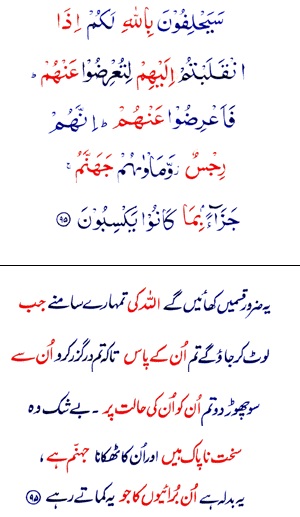 سَيَحْلِفُوْنَ بِاللّٰهِ لَكُمْ اِذَا
انْقَلَبْتُمْ اِلَيْهِمْ لِتُعْرِضُوْا عَنْهُمْ ؕ
فَاَعْرِضُوْا عَنْهُمْ ؕ اِنَّهُمْ
رِجْسٌ ز وَّمَاْوٰىهُمْ جَهَنَّمُ ۚ
جَزَآءًۢ بِمَا كَانُوْا يَكْسِبُوْنَ ۹۵
یہ ضرور قسمیں کھائیں گے اللہ کی تمہارے سامنے جب
لوٹ کر جاؤ گے تم اُن کے پاس تاکہ تم درگزر کرو اُن سے
سو چھوڑ دو تم اُن کو اُن کی حالت پر ۔ بے شک وہ
سخت ناپاک ہیں اور اُن کا ٹھکانا جہنّم ہے ،
یہ بدلہ ہے اُن بُرائیوں کا جو یہ کماتے رہے ۹۵